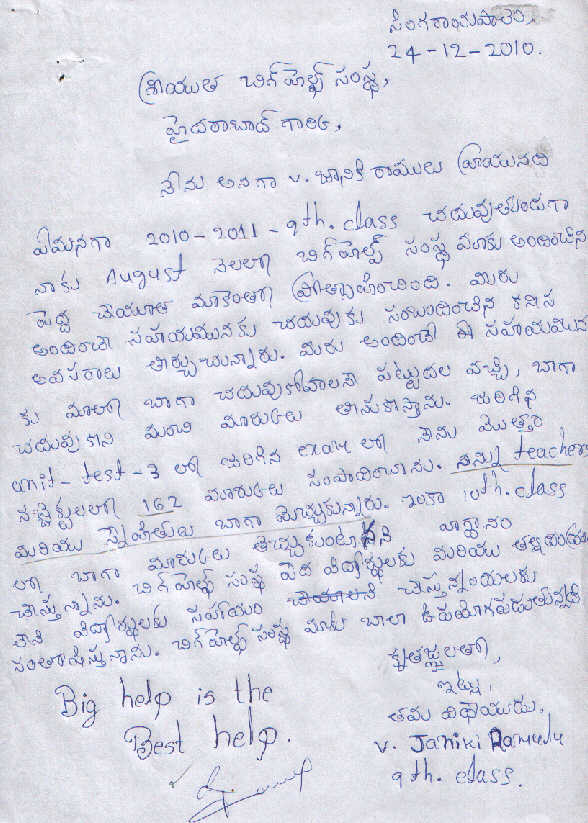 సింగరాయపాలెం,
24-12-2010.
శ్రీయుత బిగ్ హెల్ప్ సంస్థ,
హైదరాబాద్ గారికి,
నేను అనగా v. జానకి రాములు వ్రాయునది
ఏమనగా 2010-2011-9th. class చదువుతుండగా
నాకు August నెలలో బిగ్ హెల్ప్ సంస్థ మాకు అందించిన
పెద్ద చేయూత మాకెంతో ప్రోత్సహించింది. మీరు
అందించే సహాయమునకు చదువుకు సంబందించిన కనీస
అవసరాలు తీర్చుచున్నారు. మీరు అందించే ఈ సహాయము
కు మాలో బాగా చదువుకోవాలనే పట్టుదల వచ్చి, బాగా
చదువుకొని మంచి మార్కులు తీసుకొస్తాను. జరిగిన
unit-test-3 లో జరిగిన exam లో నేను మొత్తం
సబ్జెక్టులలో 162 మార్కులు సంపాదించాను. నన్ను teachers
మరియు స్నేహితులు బాగా మెచ్చుకున్నారు. ఇంకా 10th. class
లో బాగా మార్కులు తెచ్చుకుంటానని వాగ్దానం
చేస్తున్నాను. బిగ్ హెల్ప్ సంస్థ పేద విద్యార్థులకు మరియు తల్లిదండ్రులు
లేని విద్యార్థులకు సహాయం చేస్తున్నందులకు
సంతోషిస్తున్నాను. బిగ్ హెల్ప్ సంస్థ మాకు చాలా ఉపయోగపడుతున్నది
కృతజ్ఞలతో,
ఇట్లు,
తమ విధేయుడు,
Big help is the
Best help.
v. Janiki Ramulu
9th. class.